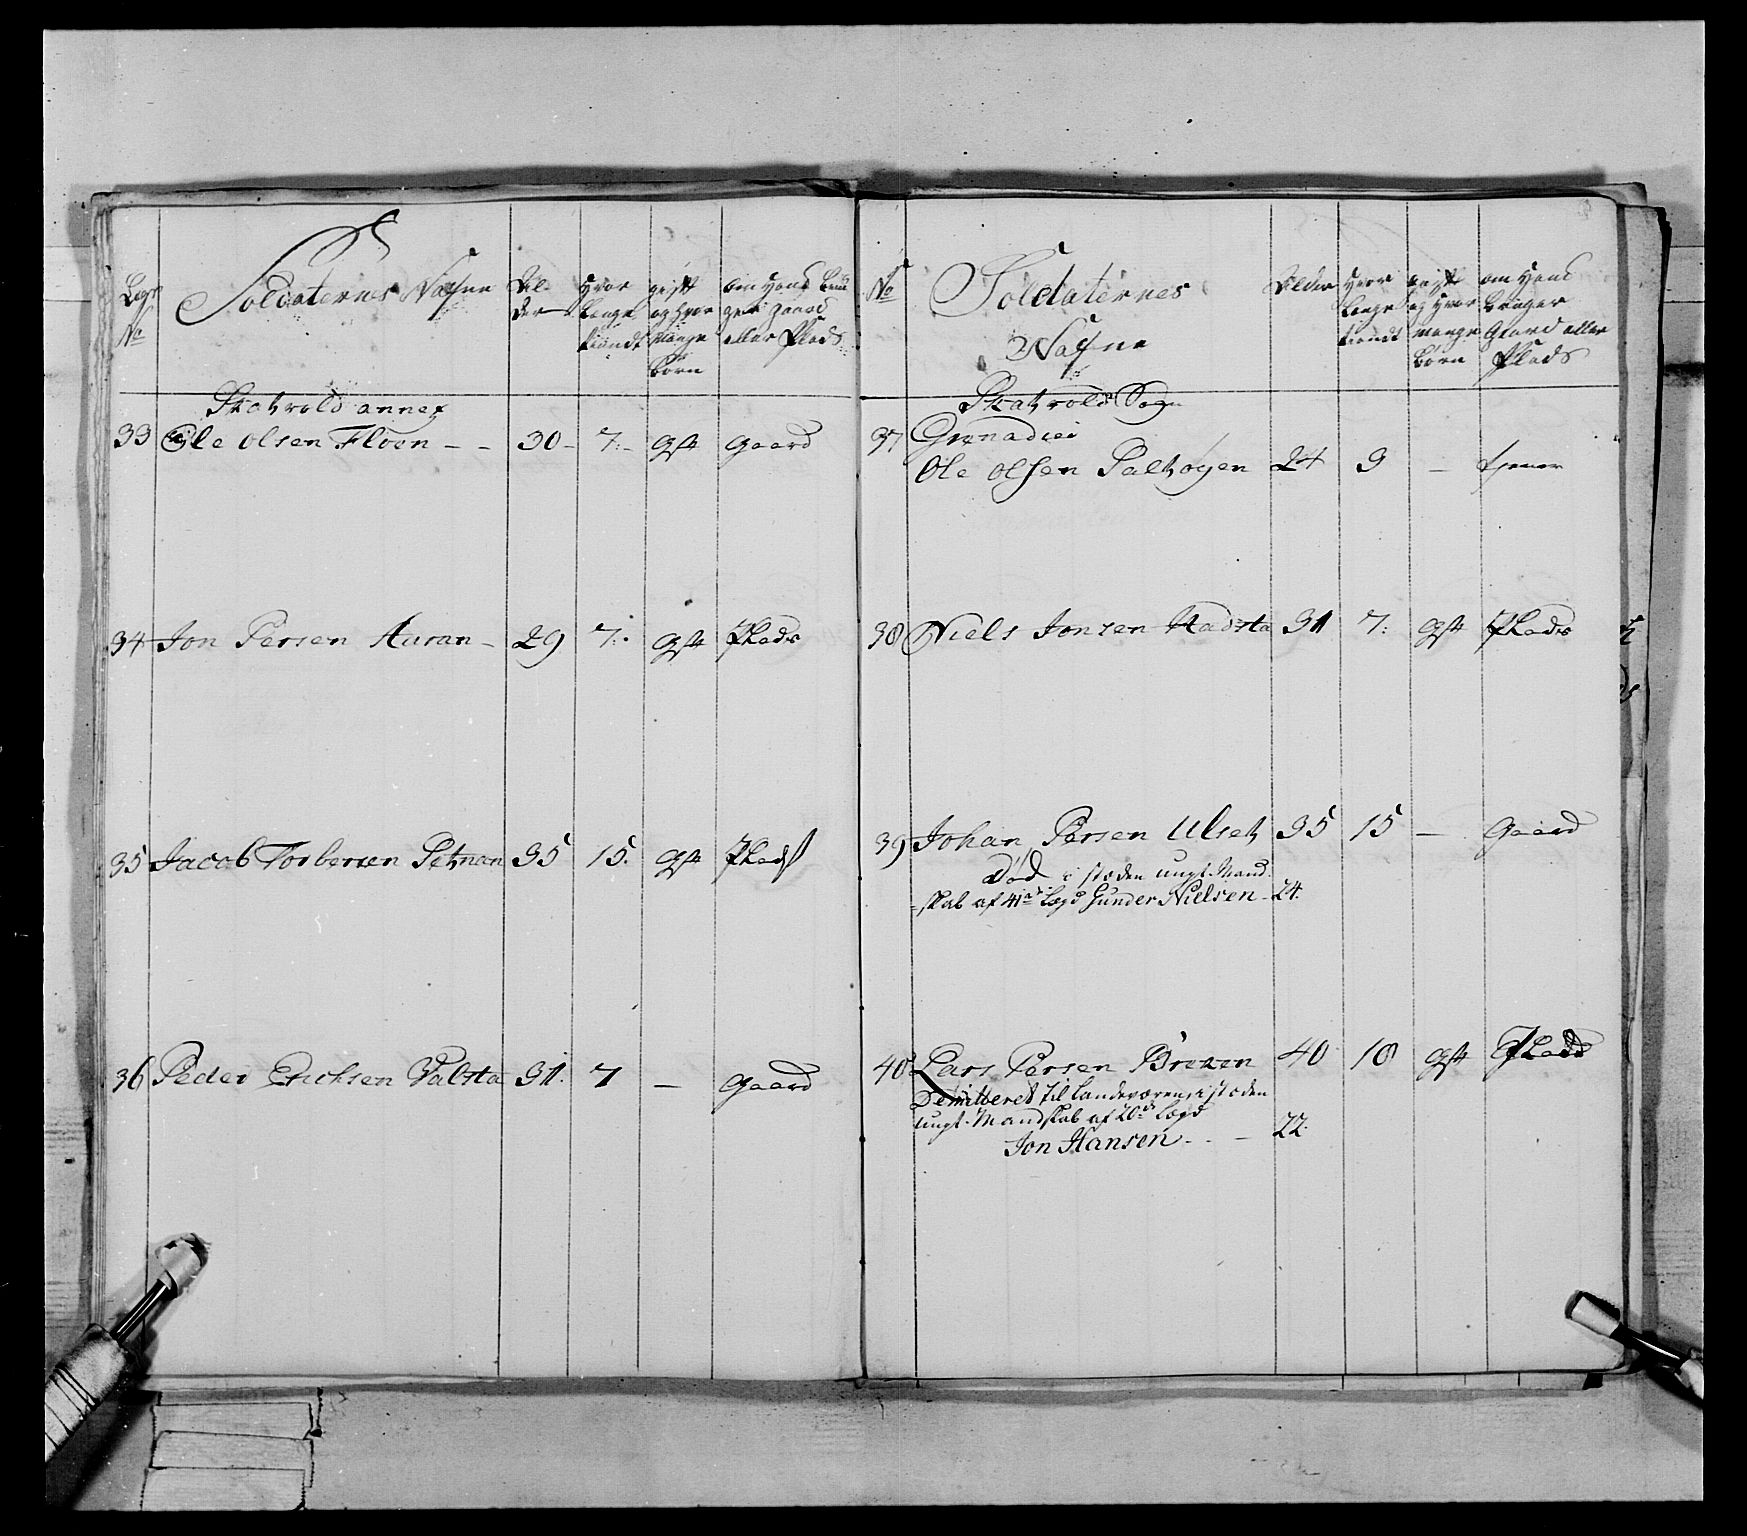 Legs No
Soldaternes Nafne
Alder
Hvor Længe tiændt
gift og Hvor Mange børn
om Hand bruger gaard eller Plads
Skatvold annex
33 Ole Olsen Floen - - 30 - 7. - gift gaard
34 Jon Persen Auran - 29 7. gift Plads
35 Jacob Torbersen Setnan 35 15. gift Plads
36 Peder Erichsen Valsta 31. 7 — gaard
No
Soldaternes Nafne
Alder
Hvor Længe tiændt
gift og Hvor mange børn
om Hand bruger Gaard eller Plads
Skatvold Sogn
37 Grenadier
Ole Olsen Salthøyen 24 3 — tjener
38 Niels Jonsen Hadsta 31 7. gift Plads
39 Johan Persen Ulset 35 15 — gaard
Død i stæden ungt Mand
skab af 41de Lægd Gunder Nielsen - 24.
40 Lars Persen Breken 40 18 gift Plads
Demitteret til Landeværen, i stæden
ungt Mandskab af 20de Lægd
Jon Hansen - - — 22.